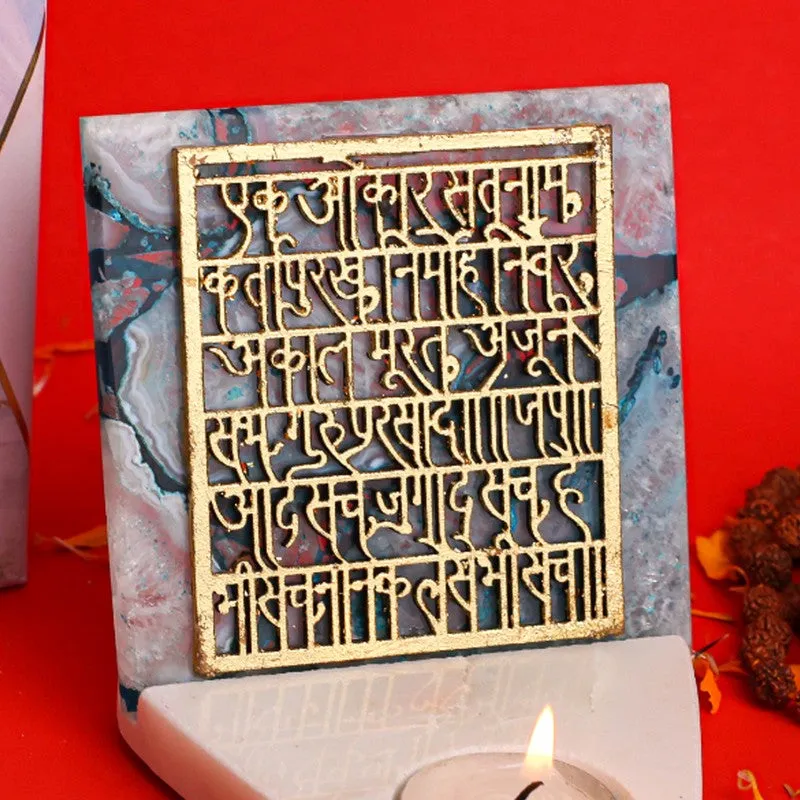 एक ओंकार सतनाम
कर्तापुरख निर्मोह निर्वैर
अकाल मूरत अजून
सभं गुरु परसाद॥ जप॥
आद सच जुगाद सच है
भी सच नानक होसे भी सच॥